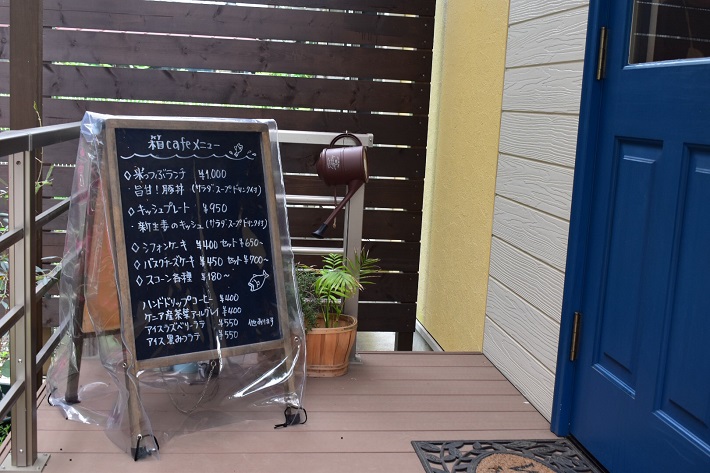 箱cafeメニュー
◇米っぶランチ ¥1,000
・旨甘！豚丼（サラダ スープ ドリンク付）
◇キッシュプレート ¥950
・新生姜のキッシュ（サラダ スープ ドリンク付）
◇シフォンケーキ ¥400 セット¥650~
◇バスクチーズケーキ ¥450 セット¥700~
◇スコーン各種 ¥180~
ハンドドリップコーヒー ¥400
ケニア産茶葉アールグレイ ¥400
アイスラズベリーラテ ¥550 他あります
アイス黒みつラテ ¥550